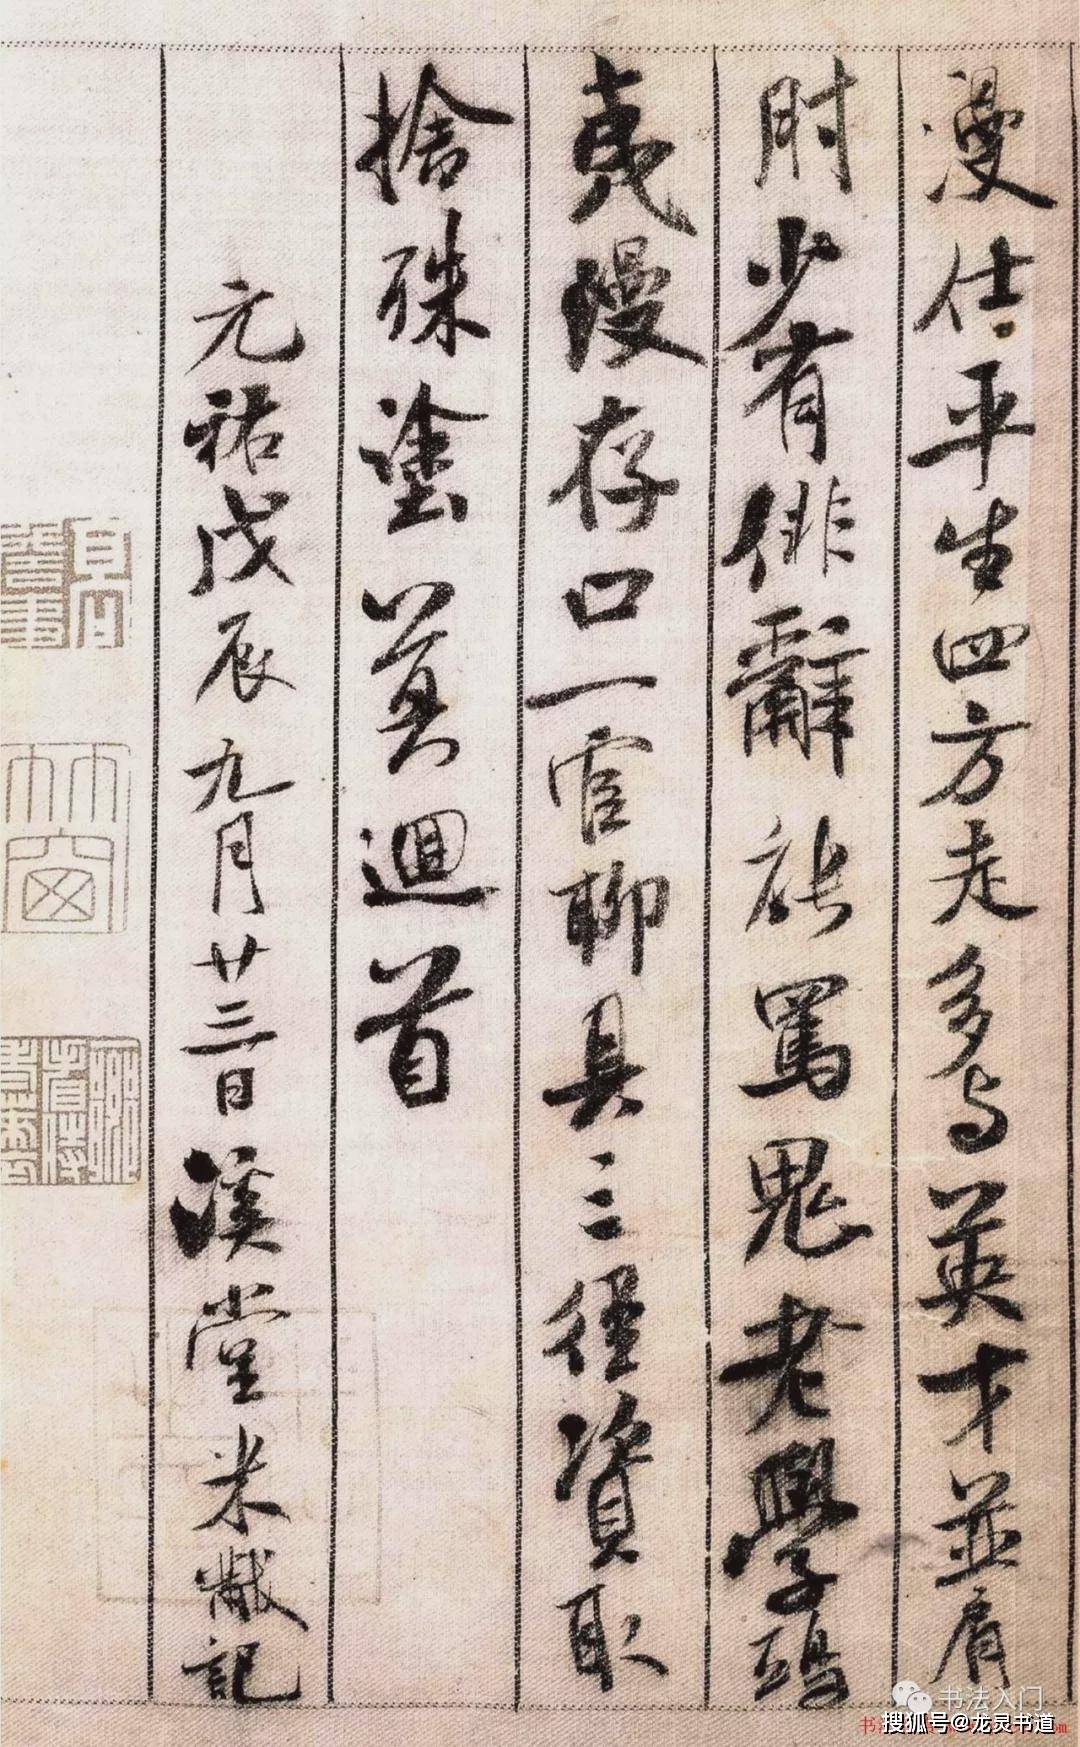 漫仕平生四方走多与英才並肩
肘少有俳辭能罵鬼老學鵄
夷漫存口一宦聊具三徑資取
捨殊塗莫迴首
元祐戊辰九月廿三日溪堂米黻記
竹窗
书法入门
搜狐号@龙灵书道